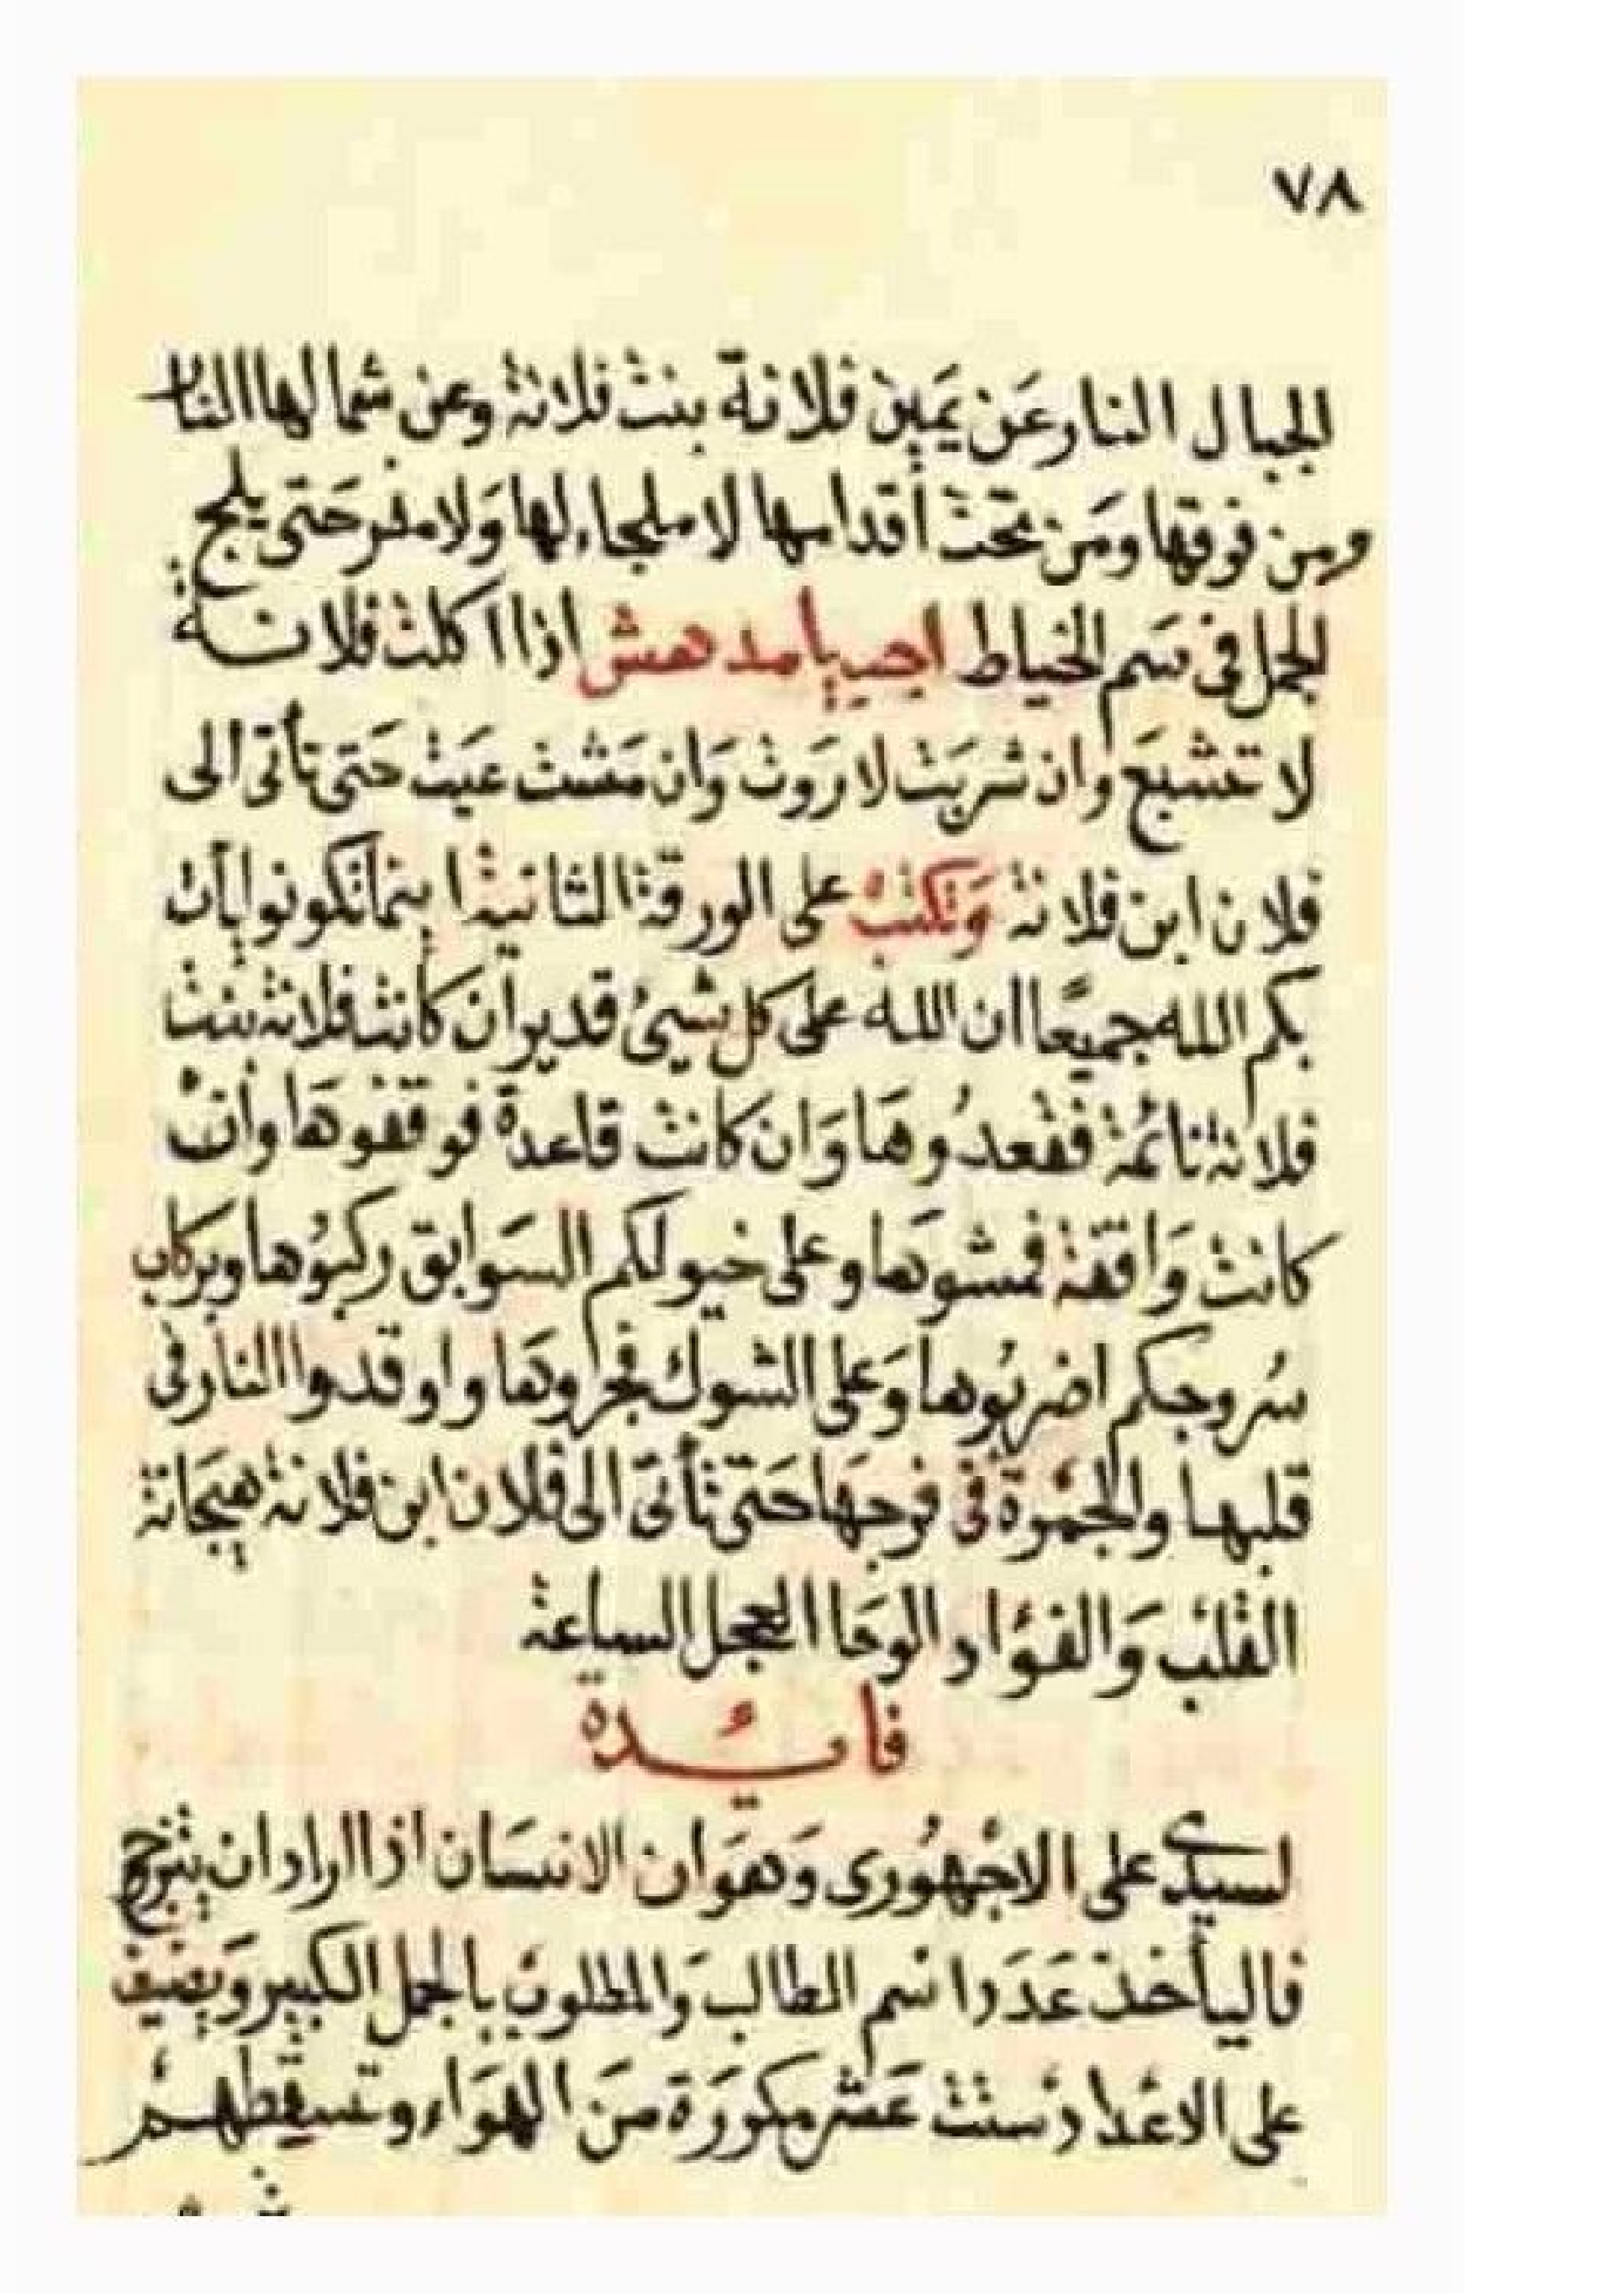 ٧٨
الجبال النار عَن يَمين فلانة بنت فلانة وعن شمالها النار
ومن فوقها ومَن تحت أقدامها لا ملجاء لها وَلا مفر حَتى يلج
الجمل فى سَم الخياط اجب يا مدهش اذا اكلت فلانة
لا تشبع وان شربَت لا رَوت وَان مَشت عيَت حَتى تأتى الى
فلان ابن فلانة وَتكتب على الورقة الثانية اينما تكونوا يأت
بكم الله جميعًا ان الله على كل شيئ قدير ان كانت فلانة بنت
فلانة نائمة فقعدُوها وَان كانت قاعدة فوقفوهَا وأنْ
كانت وَاقفة فمشوهَا وعلى خيولكم السَوابق ركبوُها وبركاب
سُروجكم اضربُوها وَعلى الشوك فجروهَا واوقدوا النار فى
قلبها والجمرَة فى فرجهَا حَتى تأتى الى فلان ابن فلانة هيجَانة
القلب وَالفؤاد الوحَا العجل الساعة
فائدة
لسيدى على الاجهُورى وَهوَ ان الانسَان اذا اراد ان يتزوج
فاليأخذ عَدَد اسم الطالب وَالمطلوب بالجمل الكبير وَيضيف
على الاعداد ستت عَشر مكررَة منَ الهوَاء وتسقطهم